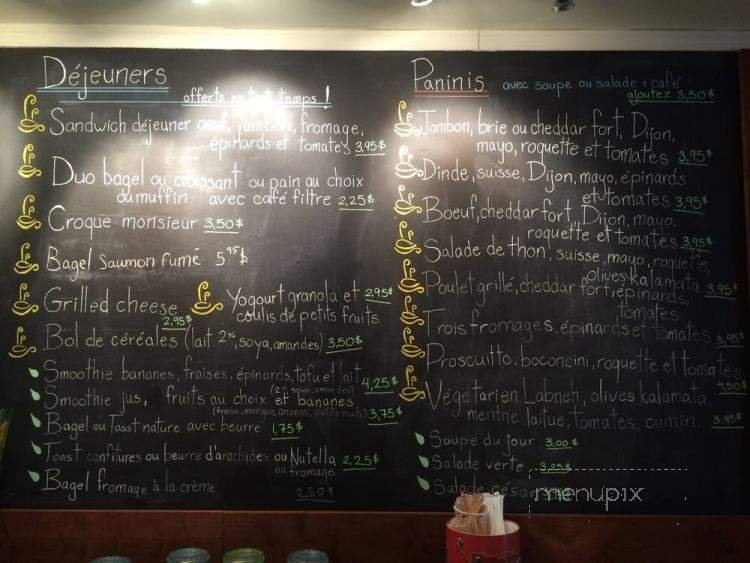 Déjeuners
offerts en tout temps !
Sandwich déjeuner oeuf, jambon, fromage,
épinards et tomates 3,95$
Duo bagel ou croissant ou pain au choix
ou muffin avec café filtre 2,25$
Croque monsieur 3,50$
Bagel saumon fumé 5 95$
Grilled cheese 2,95$
Yogourt granola et 2,95$
coulis de petits fruits
Bol de céréales (lait 2%, soya, amandes) 3,50$
Smoothie bananes, fraises, épinards, tofu et lait 4,25$
(2%, soya, amandes)
Smoothie jus, fruits au choix et bananes
(fraise, mangue, ananas, petits fruits) 3,75$
Bagel ou Toast nature avec beurre 1,75$
Toast confitures ou beurre d'arachides ou Nutella 2,25$
ou fromage
Bagel fromage à la crème 2,50$
Paninis avec soupe ou salade + café
ajoutez 3,50$
Jambon, brie ou cheddar fort, Dijon,
mayo, roquette et tomates 3,95$
Dinde, suisse, Dijon, mayo, épinards
et tomates 3,95$
Boeuf, cheddar fort, Dijon, mayo,
roquette et tomates 3,95$
Salade de thon, suisse, mayo, roquette,
olives kalamata 3,95$
Poulet grillé, cheddar fort, épinards,
tomates
Trois fromages, épinards et tomates 3,95$
Proscuitto, boconcini, roquette et tomates
4,50$
Végétarien Labneh, olives kalamata,
menthe laitue, tomates, cumin. 3,95$
Soupe du jour 3,00$
Salade verte 3,25$
Salade césar
menupix